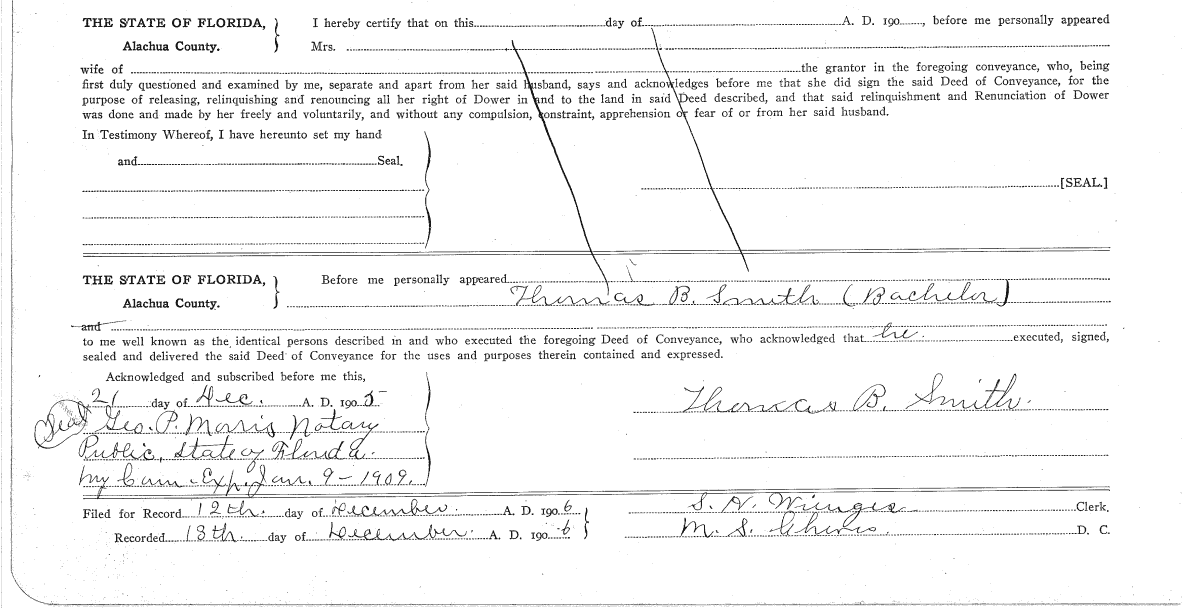 THE STATE OF FLORIDA, I hereby certify that on this day of A. D. 190 , before me personally appeared
Alachua County. Mrs.
wife of the grantor in the foregoing conveyance, who, being
first duly questioned and examined by me, separate and apart from her said husband, says and acknowledges before me that she did sign the said Deed of Conveyance, for the
purpose of releasing, relinquishing and renouncing all her right of Dower in and to the land in said Deed described, and that said relinquishment and Renunciation of Dower
was done and made by her freely and voluntarily, and without any compulsion, constraint, apprehension or fear of or from her said husband.
In Testimony Whereof, I have hereunto set my hand
and Seal.
[SEAL.]
THE STATE OF FLORIDA, Before me personally appeared
Alachua County. Thomas B. Smith (Bachelor)
and
to me well known as the identical persons described in and who executed the foregoing Deed of Conveyance, who acknowledged that he executed, signed,
sealed and delivered the said Deed of Conveyance for the uses and purposes therein contained and expressed.
Acknowledged and subscribed before me this,
21 day of Dec. A. D. 190 5 Thomas B. Smith.
Seal Geo. P. Morris Notary
Public, State of Florida.
my Com. Exp. Jan. 9-1909.
Filed for Record 12th. day of December. A. D. 190 6 S. H. Clerk.
Recorded 18th. day of December. A. D. 190 6 M. S. D. C.